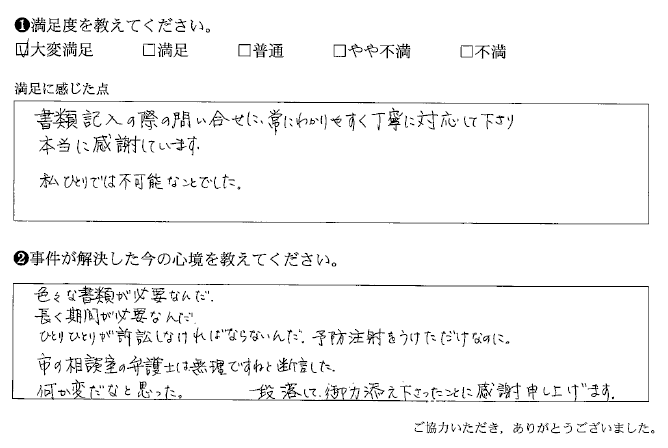 ❶満足度を教えてください。
☑大変満足 □満足 □普通 □やや不満 □不満
満足に感じた点
書類記入の際の問い合せに、常にわかりやすく丁寧に対応して下さり
本当に感謝しています。
私ひとりでは不可能なことでした。
❷事件が解決した今の心境を教えてください。
色々な書類が必要なんだ。
長く期間が必要なんだ。
ひとりひとりが訴訟しなければならないんだ。予防注射をうけただけなのに。
市の相談室の弁護士は無理ですねと断言した。
何か変だなと思った。 一段落して、御力添え下さったことに感謝申し上げます。
ご協力いただき，ありがとうございました。